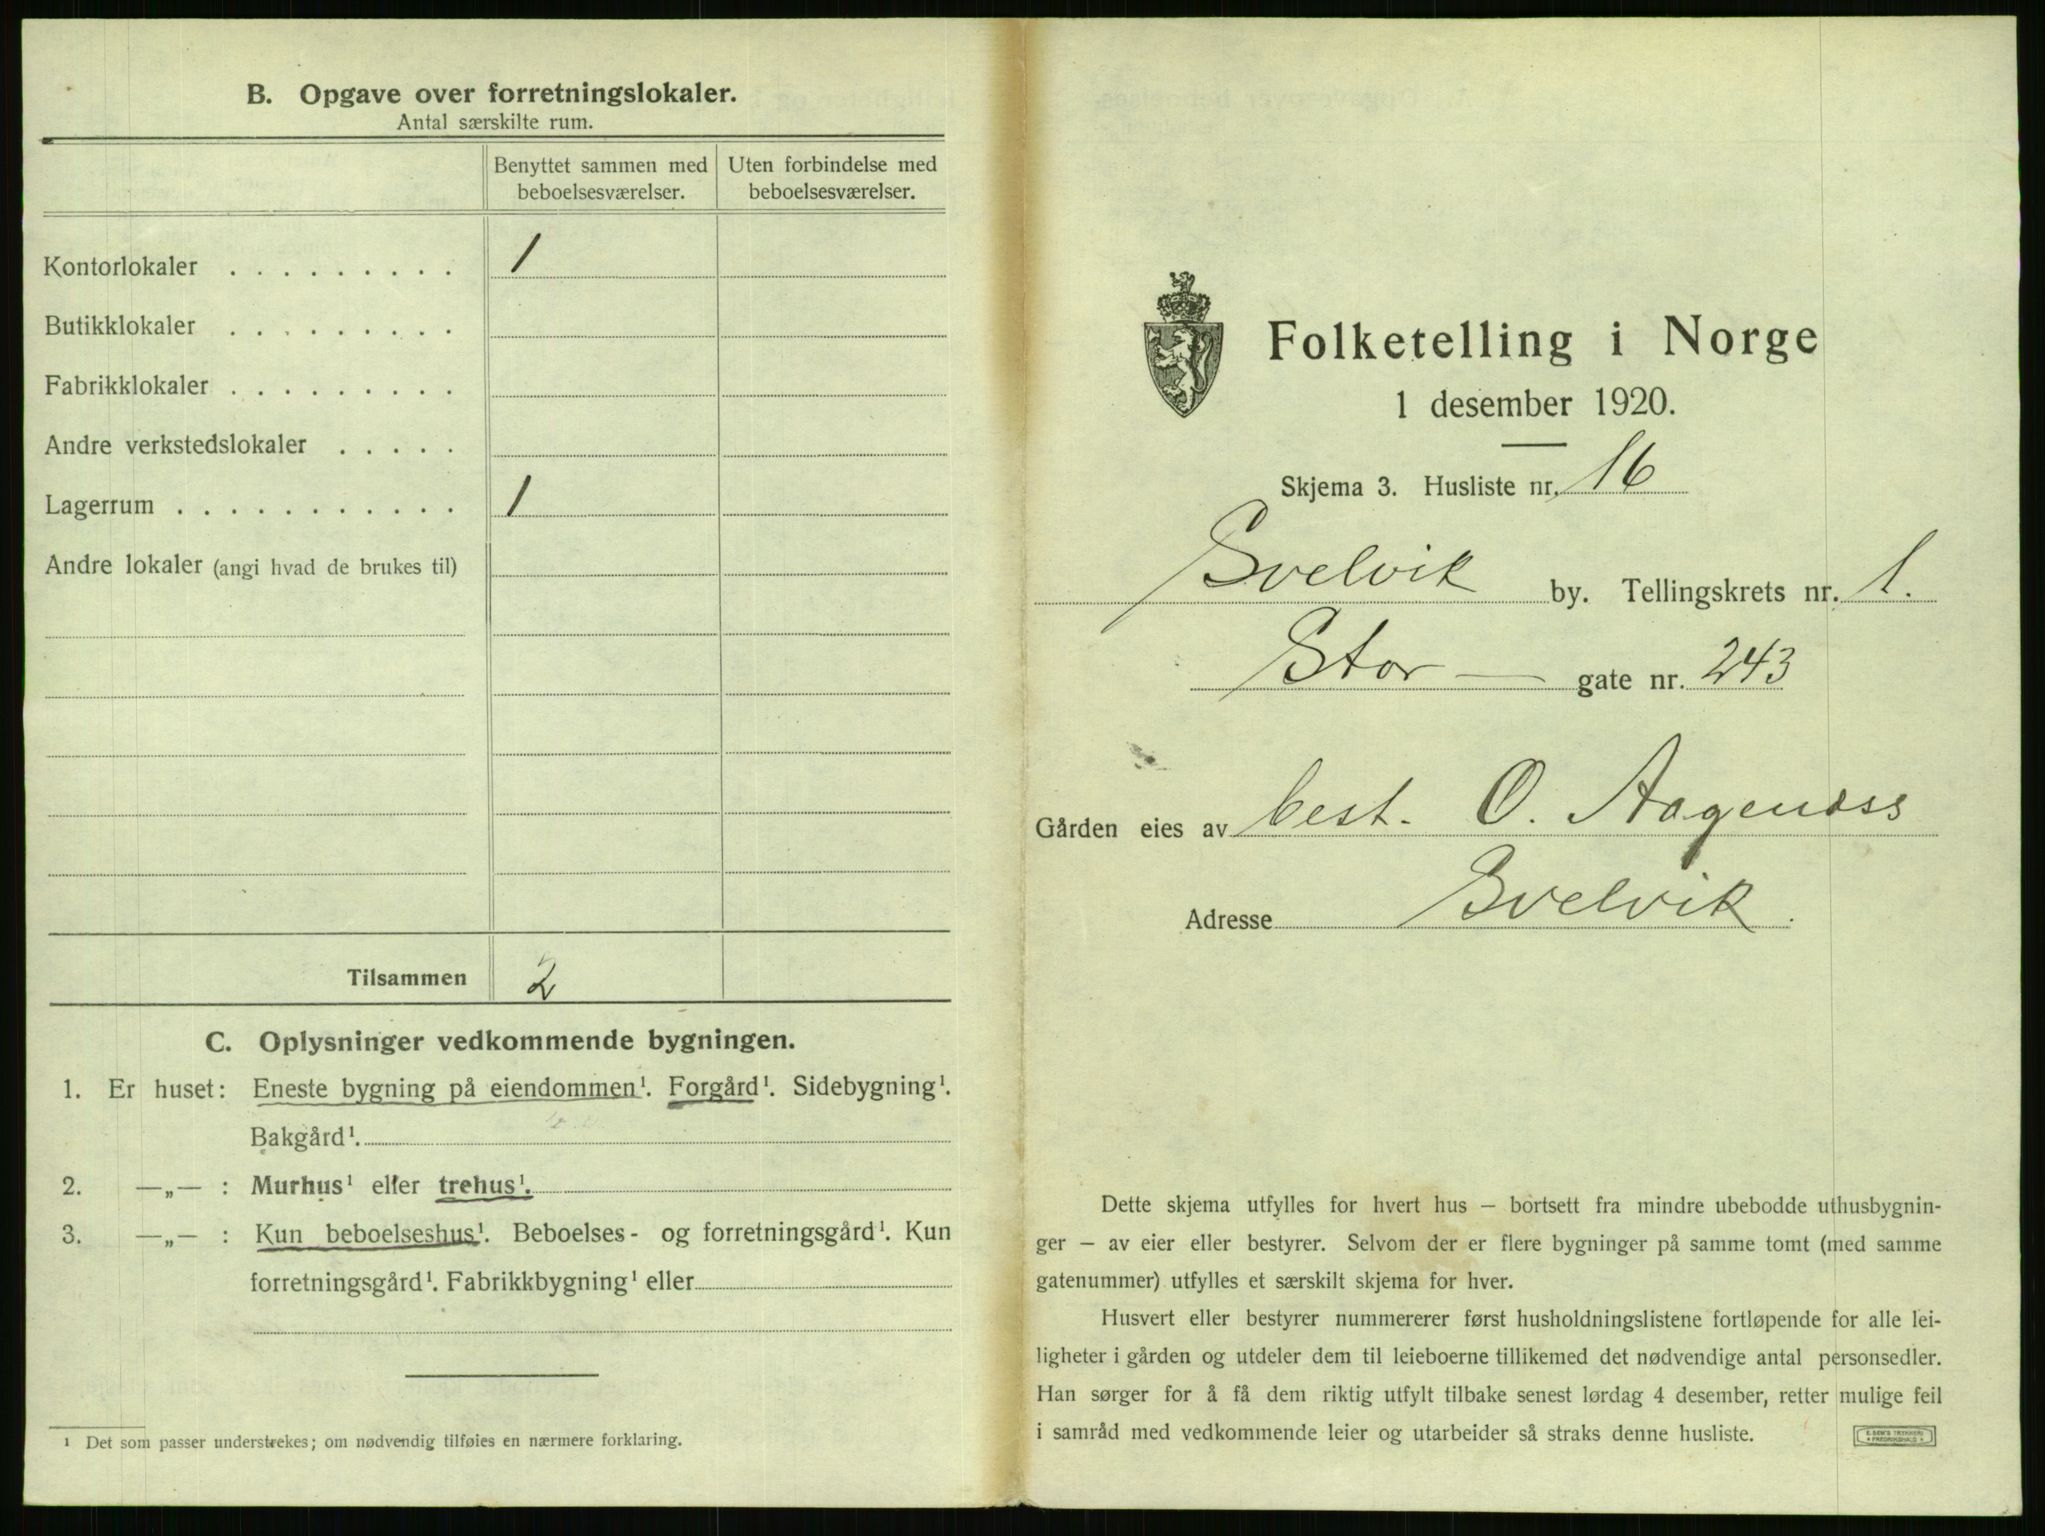 B. Opgave over forretningslokaler.
Antal særskilte rum.
Benyttet sammen med beboelsesværelser.
Uten forbindelse med beboelsesværelser.
Kontorlokaler . . . . . . . . . 1
Butikklokaler . . . . . . . . .
Fabrikklokaler . . . . . . . . .
Andre verkstedslokaler . . . . .
Lagerrum . . . . . . . . . . . 1
Andre lokaler (angi hvad de brukes til)
Tilsammen 2
C. Oplysninger vedkommende bygningen.
1. Er huset: Eneste bygning på eiendommen¹. Forgård¹. Sidebygning¹.
Bakgård¹.
2. —„— : Murhus¹ eller trehus¹.
3. —„— : Kun beboelseshus¹. Beboelses- og forretningsgård¹. Kun
forretningsgård¹. Fabrikkbygning¹ eller
¹ Det som passer understrekes; om nødvendig tilføies en nærmere forklaring.
Folketelling i Norge
1 desember 1920.
Skjema 3. Husliste nr. 16
Svelvik by. Tellingskrets nr. 1.
Stor — gate nr. 243
Gården eies av best. O. Aagenæss
Adresse Svelvik.
Dette skjema utfylles for hvert hus – bortsett fra mindre ubebodde uthusbygnin-
ger – av eier eller bestyrer. Selvom der er flere bygninger på samme tomt (med samme
gatenummer) utfylles et særskilt skjema for hver.
Husvert eller bestyrer nummererer først husholdningslistene fortløpende for alle lei-
ligheter i gården og utdeler dem til leieboerne tillikemed det nødvendige antal personsedler.
Han sørger for å få dem riktig utfylt tilbake senest lørdag 4 desember, retter mulige feil
i samråd med vedkommende leier og utarbeider så straks denne husliste.